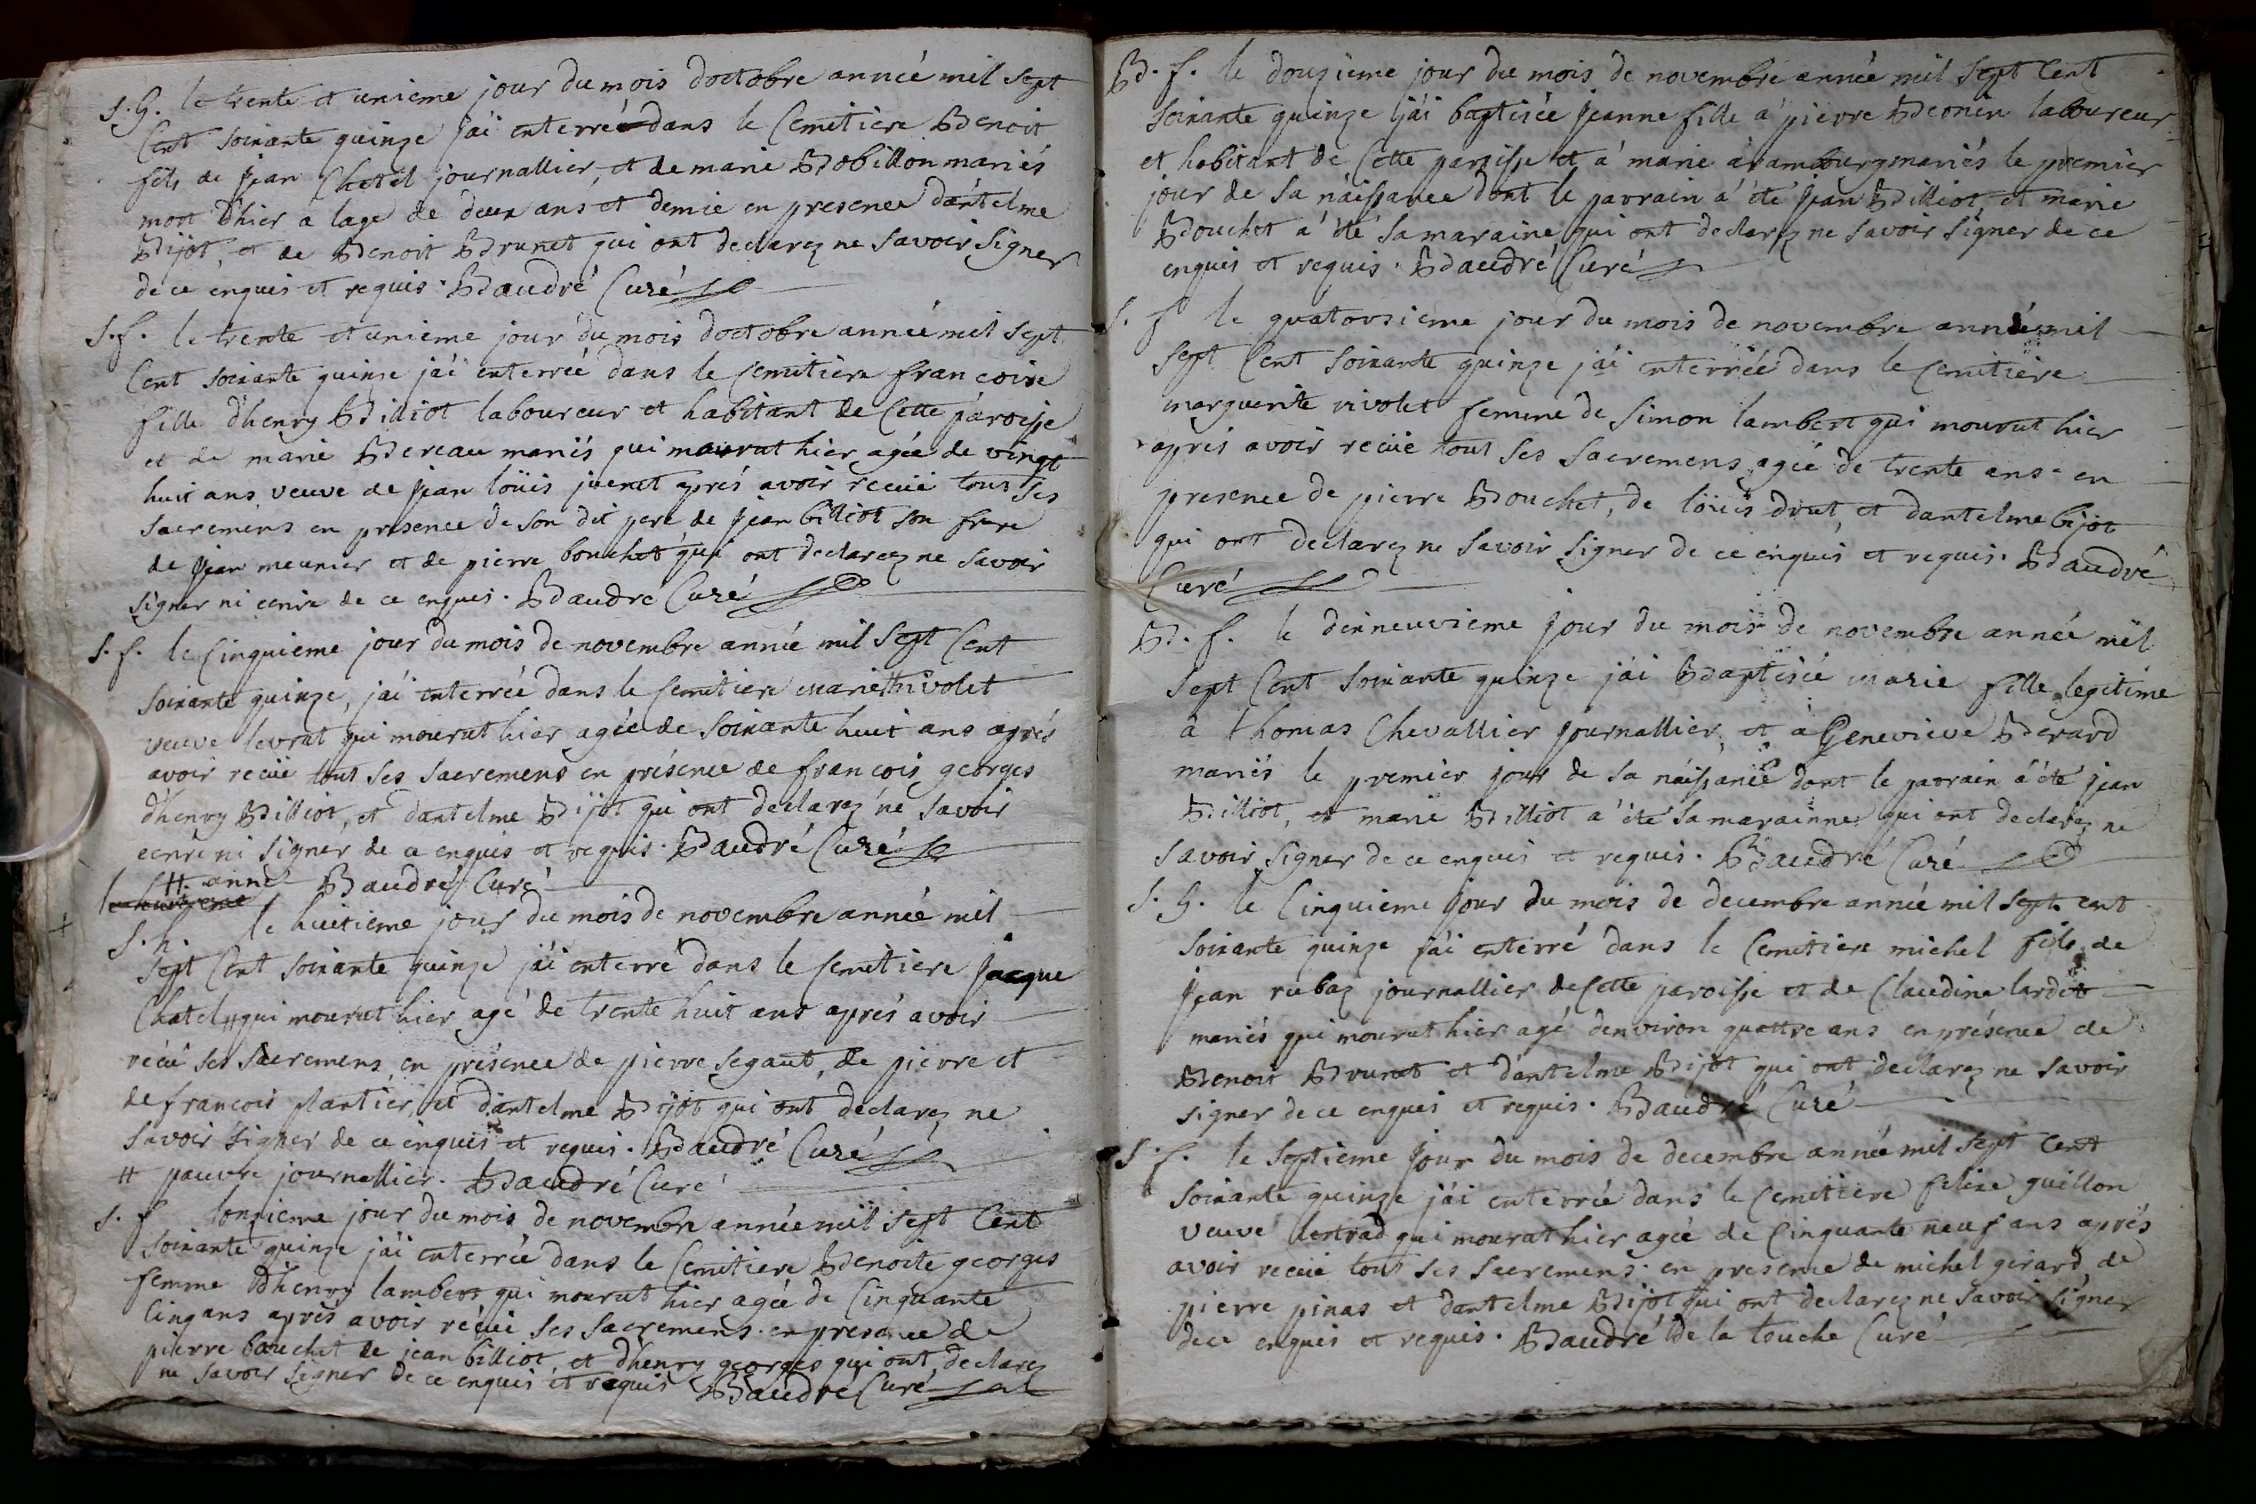 s.G. le trente et unieme jour du mois doctobre année mil sept
Cent soixante quinze jai enterré dans le Cemitiere Benoit
fils de jean Chatel journallier, et de marie Bobillon mariés
mort d'hier a lage de deux ans et demie en presence dantelme
Bijot, et de Benoit Brunet qui ont declarez ne savoir signer
de ce enquis et requis. Baudré Curé
s.f. le trente et unieme jour du mois doctobre année mil sept
Cent soixante quinze jái enterrée dans le cemitiere francoise
fille d'henry Billiot laboureur et habitant de Cette paroisse
et de marie Bereau mariés qui mourut hier agée de vingt
huit ans veuve de jean loüis juenet aprés avoir recüe tous ses
sacremens en presence de son dit pere de jean billiot son frere
de jean meunier et de pierre bouchet qui ont declarez ne savoir
signer ni ecrire de ce enquis. Baudré Curé
s.f. le Cinquieme jour du mois de novembre année mil sept Cent
soixante quinze, jái enterrée dans le cemitiere marie thivolet
veuve levrat qui mourut hier agée de soixante huit ans aprés
avoir recüe tout ses sacremens en présence de francois georges
d'henry Billiot, et dantelme Bijot qui ont declarez ne savoir
ecrire ni signer de ce enquis et requis. Baudré Curé
H anne Baudré Curé
s.h. le huitieme jour du mois de novembre année mil
sept Cent soixante quinze jái enterré dans le cemitiere jacque
Chatel H qui mourut hier agé de trente huit ans aprés avoir
récü ses sacremens en présence de pierre segaut, de pierre et
de francois plantier, et dantelme Bijot qui ont declarez ne
savoir signer de ce enquis et requis. Baudré Curé
H pauvre journallier. Baudré Curé
s.f lonzieme jour du mois de novembre année mil sept Cent
soixante quinze jái enterrée dans le Cemitiere Benoite georges
femme D'henry lambert qui mourut hier agée de Cinquante
Cinq ans aprés avoir récüe ses sacremens en presence de
pierre bouchet de jean billiot, et d'henry georges qui ont declarez
ne savoir signer de ce enquis et requis Baudré Curé
Bd. f. le douzieme jour du mois de novembre année mil sept Cent
soixante quinze jái baptisée jeanne fille á pierre Beonin laboureur
et habitant de Cette paroisse et á marie árambourg mariés le premier
jour de sa náissance dont le parrain á été jean Billiot, et marie
Bouchet á été sa maraine qui ont declarez ne savoir signer de ce
enquis et requis. Baudré Curé
s. f le quatorsieme jour du mois de novembre année mil
sept Cent soixante quinze jái enterrée dans le cemitiere
marguerite rivolet femme de Simon lambert qui mourut hier
aprés avoir recüe tout ses sacremens agée de trente ans en
presence de pierre Bouchet, de loüis drut, et dantelme bijot
qui ont declarez ne savoir signer de ce enquis et requis. Baudré
Curé
Bd. f. le dixneuvieme jour du mois de novembre année mil
sept Cent soixante quinze jái Baptisée marie fille legitime
á thomas Chevallier journallier, et á Genevieve Berard
mariés le premier jour de sa náissance dont le parrain á été jean
Billiot, et marie Billiot a été sa marainne qui ont declarez ne
savoir signer de ce enquis et requis. Baudré Curé
s. G. le Cinquieme jour du mois de decembre année mil sept cent
soixante quinze jái enterré dans le Cemitiere michel fils de
jean rubaz journallier de Cette paroisse et de Claudine lardet
mariés qui mourut hier agé d'environ quattre ans en présence de
Benoit Brunet et dantelme Bijot qui ont declarez ne savoir
signer de ce enquis et requis. Baudré Curé
s. f. le septieme jour du mois de decembre année mil sept cent
soixante quinze jái enterrée dans le Cemitiere feline guillon
veuve qui mourut hier agée de Cinquante neuf ans aprés
avoir recüe tous ses sacremens. en presence de michel girard, de
pierre pinas et dantelme Bijot qui ont declarez ne savoir signer
dece enquis et requis. Baudré De la touche Curé